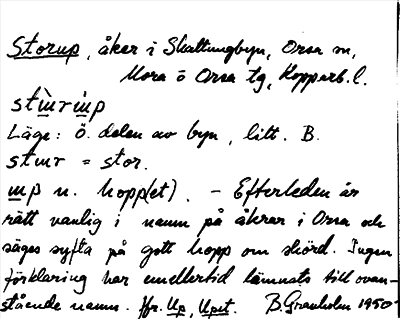 Storup, åker i Skattungbyn, Orsa sn,
Mora o Orsa tg, Kopparb. l.
stɯ̀rɯ́p
Läge: Ö. delen av byn, litt. B.
stɯr = stor.
ɯp n. hopp(et). - Efterleden är
rätt vanlig i namn på åkrar i Orsa och
säges syfta på gott hopp om skörd. Ingen
förklaring har emellertid lämnats till ovan-
stående namn. Jfr. Up, Upet. B. Granholm 1950